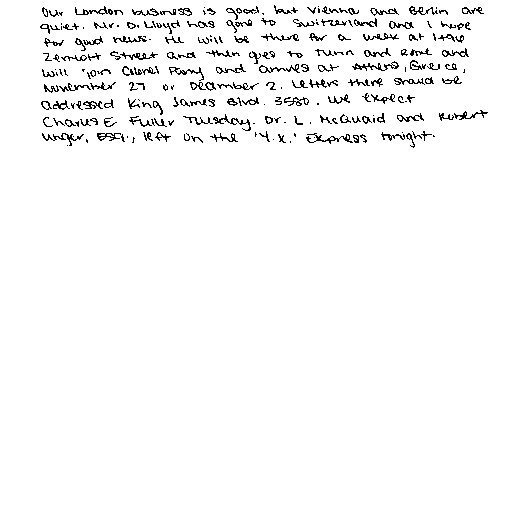 Our London business is good, but Vienna and Berlin are
quiet. Mr. D. Lloyd has gone to Switzerland and I hope
for good news. He will be there for a week at 1496
Zermott Street and then goes to Turin and Rome and
will join Colonel Parry and arrives at Athens, Greece,
November 27 or December 2. Letters there should be
addressed King James Blvd. 3580. We expect
Charles E. Fuller Tuesday. Dr. L. McQuaid and Robert
Unger, Esq., left on the 'Y.X.' Express tonight.